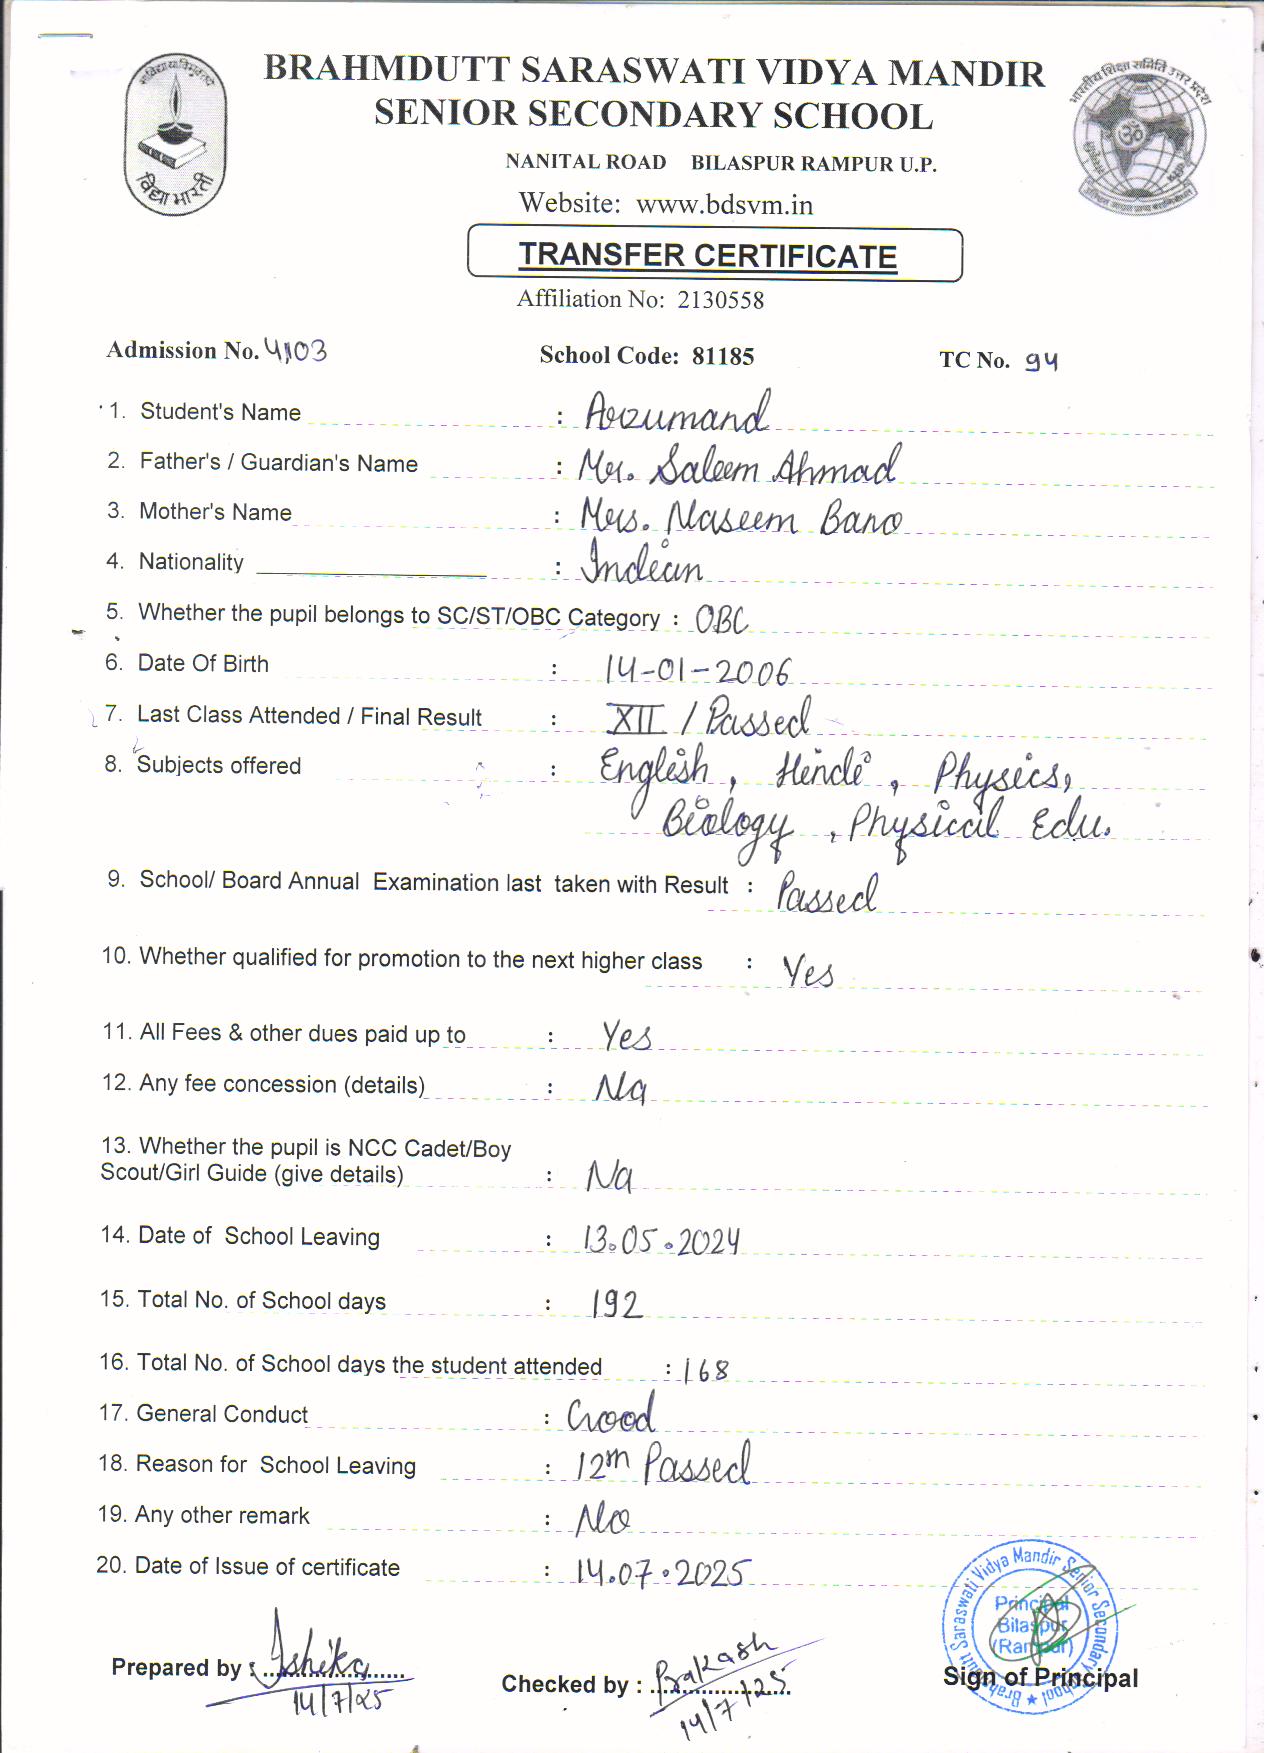 BRAHMDUTT SARASWATI VIDYA MANDIR
SENIOR SECONDARY SCHOOL
NANITAL ROAD BILASPUR RAMPUR U.P.
Website: www.bdsvm.in
विद्या भारती
भारतीय शिक्षा समिति उत्तर प्रदेश
TRANSFER CERTIFICATE
Affiliation No: 2130558
Admission No. 4103 School Code: 81185 TC No. 94
1. Student's Name : Arzumand
2. Father's / Guardian's Name : Mr. Saleem Ahmad
3. Mother's Name : Mrs. Naseem Bano
4. Nationality : Indian
5. Whether the pupil belongs to SC/ST/OBC Category : OBC
6. Date Of Birth : 14-01-2006
7. Last Class Attended / Final Result : XII / Passed
8. Subjects offered : English, Hindi, Physics,
Biology, Physical Edu.
9. School/ Board Annual Examination last taken with Result : Passed
10. Whether qualified for promotion to the next higher class : Yes
11. All Fees & other dues paid up to : Yes
12. Any fee concession (details) : Na
13. Whether the pupil is NCC Cadet/Boy
Scout/Girl Guide (give details) : Na
14. Date of School Leaving : 13.05.2024
15. Total No. of School days : 192
16. Total No. of School days the student attended : 168
17. General Conduct : Good
18. Reason for School Leaving : 12th Passed
19. Any other remark : No
20. Date of Issue of certificate : 14.07.2025
Prepared by : Ishika
14/7/25
Checked by : Prakash
14/7/25
Brahmdutt Saraswati Vidya Mandir Senior Secondary School
Principal
Bilaspur
(Rampur)
Sign of Principal